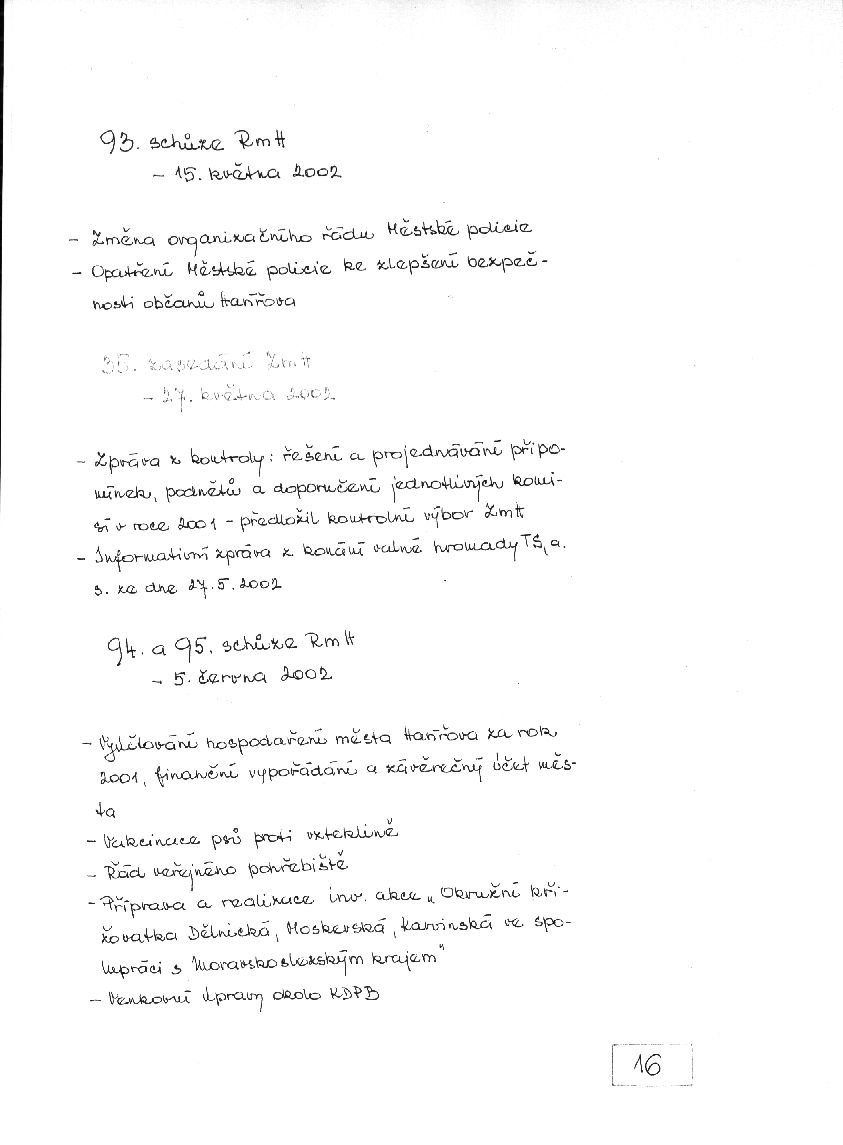 93. schůze RmH
– 15. května 2002
– Změna organizačního řádu Městské policie
– Opatření Městské policie ke zlepšení bezpeč-
nosti občanů Havířova
35. zasedání ZmH
– 27. května 2002
– Zpráva z kontroly: řešení a projednávání připo-
mínek, podnětů a doporučení jednotlivých komi-
sí v roce 2001 – předložil kontrolní výbor ZmH
– Informativní zpráva z konání valné hromady TS, a.
s. ze dne 27. 5. 2002
94. a 95. schůze RmH
– 5. června 2002
– Vyúčtování hospodaření města Havířova za rok
2001, finanční vypořádání a závěrečný účet měs-
ta
– Vakcinace psů proti vzteklině
– Řád veřejného pohřebiště
– Příprava a realizace inv. akce „Okružní kři-
žovatka Dělnická, Moskevská, Karvinská ve spo-
lupráci s Moravskoslezským krajem"
– Venkovní úpravy okolo KDPB
16